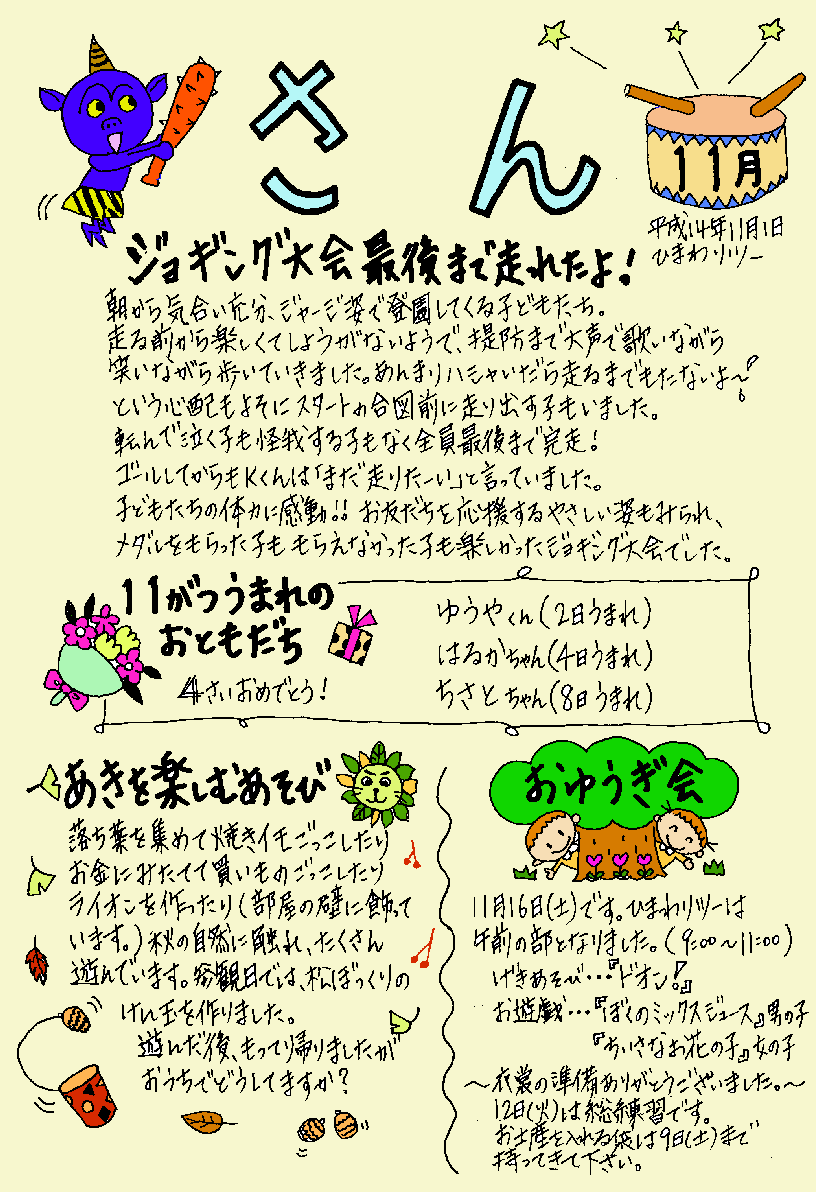 さん
11月
平成14年11月1日
ひまわりツー
ジョギング大会最後まで走れたよ！
朝から気合い充分、ジャージ姿で登園してくる子どもたち。
走る前から楽しくてしようがないようで、堤防まで大声で歌いながら
笑いながら歩いていきました。あんまりハシャいだら走るまでもたないよ〜！
という心配もよそにスタートの合図前に走り出す子もいました。
転んで泣く子も怪我する子もなく全員最後まで完走！
ゴールしてからもKくんは「まだ走りたーい」と言っていました。
子どもたちの体力に感動!! お友だちを応援するやさしい姿もみられ、
メダルをもらった子も もらえなかった子も楽しかったジョギング大会でした。
11がつうまれの
おともだち
4さいおめでとう！
ゆうやくん（2日うまれ）
はるかちゃん（4日うまれ）
ちさとちゃん（8日うまれ）
あきを楽しむあそび
落ち葉を集めて焼きイモごっこしたり
お金にみたてて買いものごっこしたり
ライオンを作ったり（部屋の壁に飾って
います。）秋の自然に触れ、たくさん
遊んでいます。参観日では、松ぼっくりの
けん玉を作りました。
遊んだ後、もって帰りましたが
おうちでどうしてますか？
おゆうぎ会
11月16日(土)です。ひまわりツーは
午前の部となりました。（9:00〜11:00）
げきあそび…『ドオン！』
お遊戯…『ぼくのミックスジュース』男の子
『ちいさなお花の子』女の子
〜衣裳の準備ありがとうございました。〜
12日(火)は総練習です。
お土産を入れる袋は9日(土)まで
持ってきて下さい。